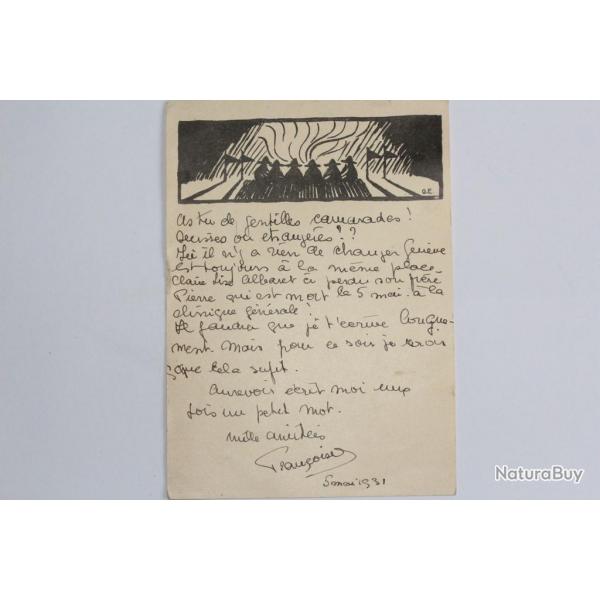 O.E.
As tu de gentilles camarades!
Suisses ou étrangères!??
Ici il n'y a rien de changer Genève
est toujours à la même place.
Claire Lise Albaret a perdu son frère
Pierre qui est mort le 5 mai. à la
clinique générale!
Il faudra que je t'écrive longue-
ment. Mais pour ce soir je crois
que cela sufit.
Aurevoir écrit moi une
fois un petit mot.
mille amitiés
Françoise
5 mai 1931
NaturaBuy